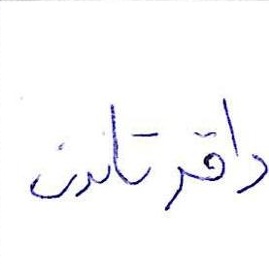 داقر تاندن